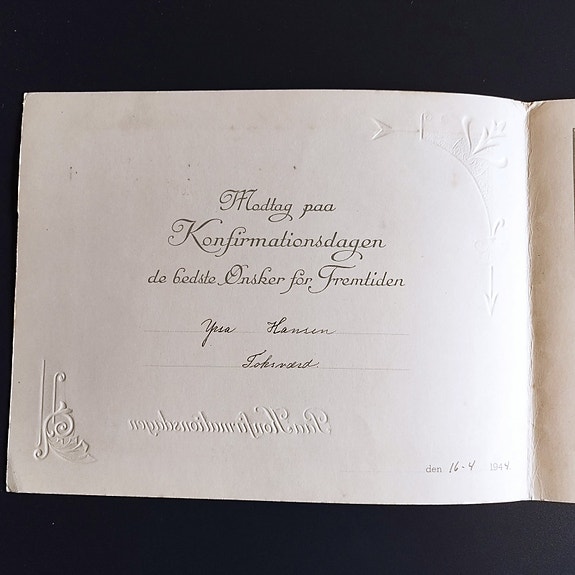 Modtag paa
Konfirmationsdagen
de bedste Ønsker for Fremtiden
Hansen
Toksværd.
Paa Konfirmationsdagen
den 16-4 1944.